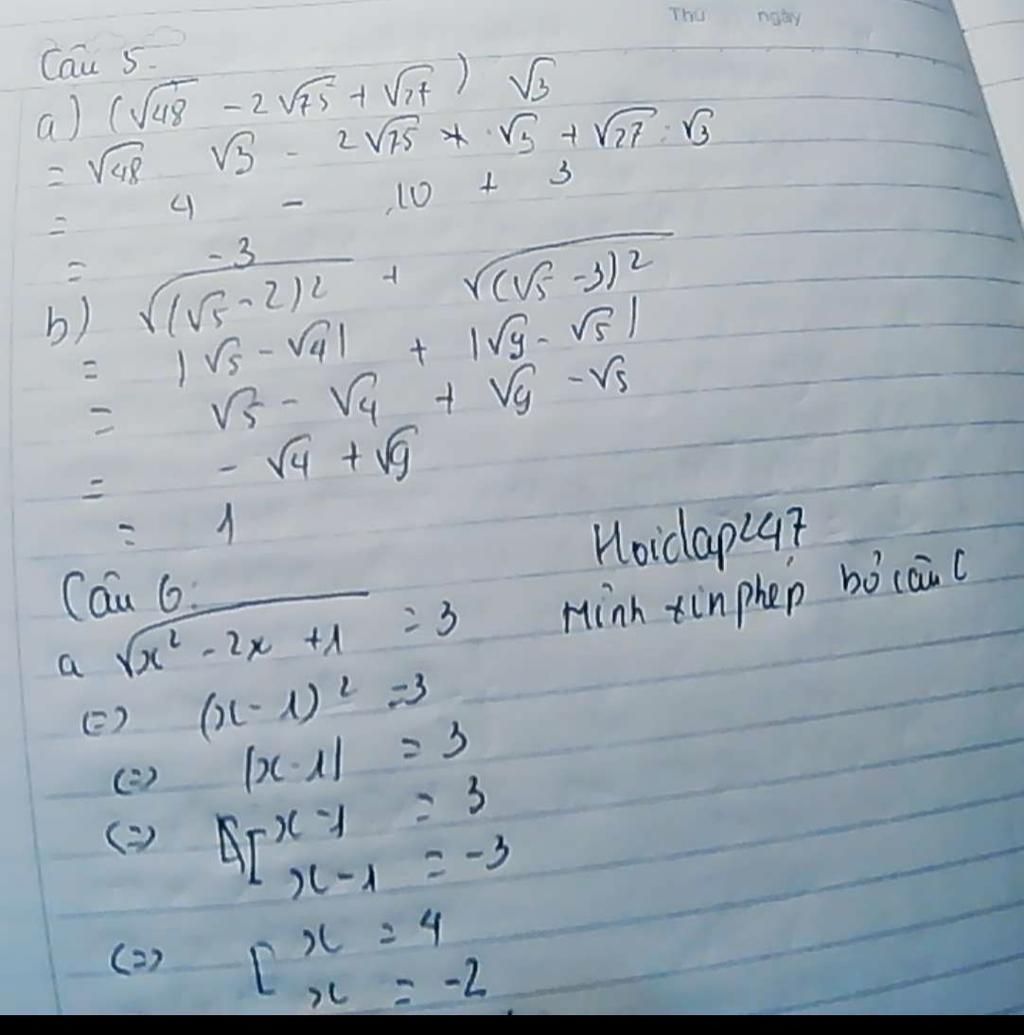 Thứ ngày
Câu 5.
a) (√48 - 2√75 + √27) √3
= √48 √3 - 2√75 * . √3 + √27 : √3
= 4 - 10 + 3
= -3
b) √(√5 - 2)² + √(√5 - 3)²
= |√5 - √4| + |√9 - √5|
= √5 - √4 + √9 - √5
= - √4 + √9
= 1
Hoidap247
Mình xin phép bỏ câu c
Câu 6:
a √x² - 2x + 1 = 3
<=> (x - 1)² = 3
<=> |x - 1| = 3
<=> [ x - 1 = 3
x - 1 = -3
<=> [ x = 4
x = -2